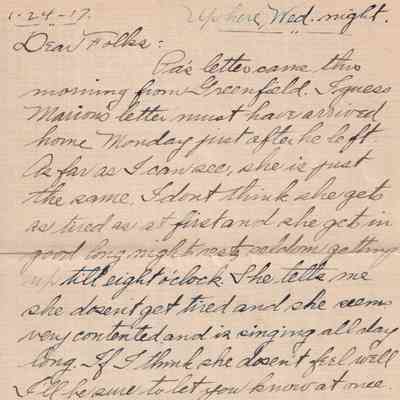 1-24-17. Up here, Wed. night.
Dear Folks:
Pa's letter came this
morning from Greenfield. I guess
Marion's letter must have arrived
home Monday just after he left.
As far as I can see, she is just
the same. I dont think she gets
as tired as at first and she gets in
good long night rests seldom getting
up till eight o'clock. She tells me
she doesn't get tired and she seems
very contented and is singing all day
long. If I think she doesn't feel well
I'll be sure to let you know at once.